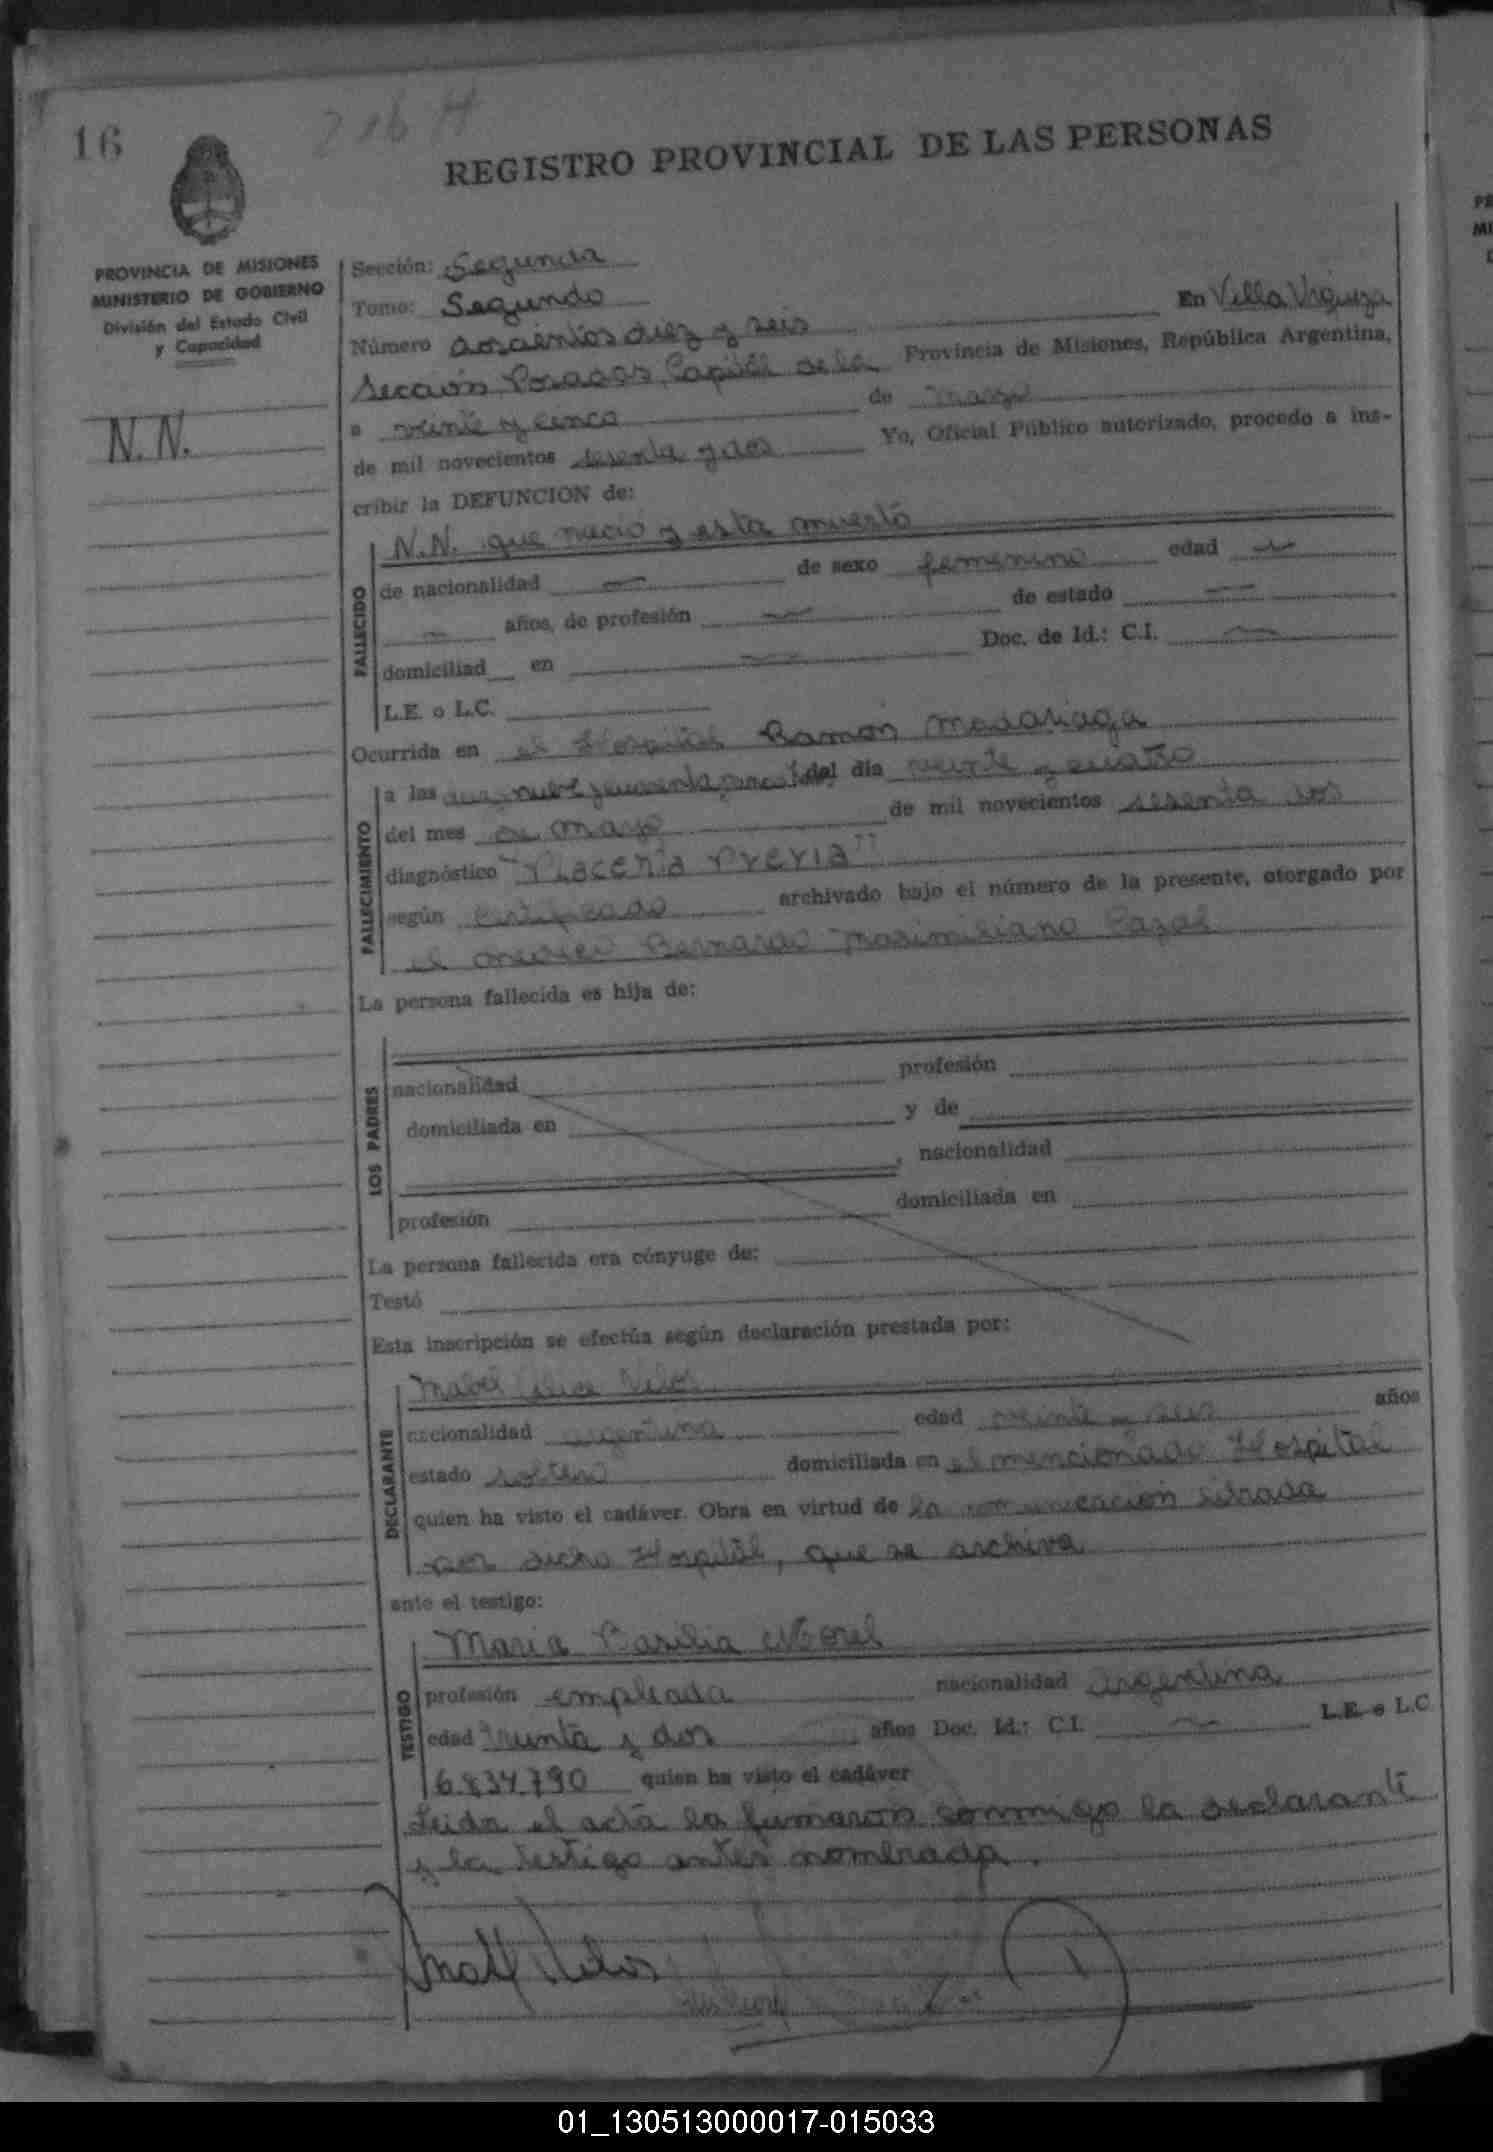 16
REGISTRO PROVINCIAL DE LAS PERSONAS
PROVINCIA DE MISIONES
MINISTERIO DE GOBIERNO
División del Estado Civil
y Capacidad
N.N.
Sección: Segunda
Tomo: Segundo
Número doscientos diez y seis En Villa Urquiza
Sección Posadas, Capital de la Provincia de Misiones, República Argentina,
a veinte y cinco de mayo
de mil novecientos sesenta y dos Yo, Oficial Público autorizado, procedo a ins-
cribir la DEFUNCION de:
FALLECIDO
N.N. que nació y esta muerto
de nacionalidad — de sexo femenino edad —
— años, de profesión — de estado —
domiciliad en — Doc. de Id.: C.I. —
L.E. o L.C.
Ocurrida en el Hospital Ramon Madariaga
FALLECIMIENTO
a las diez, nueve y cuarenta del día veinte y cuatro
del mes de mayo de mil novecientos sesenta dos
diagnóstico "Placenta Previa"
según certificado archivado bajo el número de la presente, otorgado por
el medico Bernardo Maximiliano
La persona fallecida es hija de:
LOS PADRES
nacionalidad profesión
domiciliada en y de
, nacionalidad
profesión domiciliada en
La persona fallecida era cónyuge de:
Testó
Esta inscripción se efectúa según declaración prestada por:
DECLARANTE
Mabel
nacionalidad argentina edad veinte y seis años
estado soltera domiciliada en el mencionado Hospital
quien ha visto el cadáver. Obra en virtud de la comunicación librada
por dicho Hospital, que se archiva
ante el testigo:
TESTIGO
Maria Basilia Morel
profesión empleada nacionalidad argentina
edad treinta y dos años Doc. Id.: C.I. — L.E. o L.C.
6.834.790 quien ha visto el cadáver
Leida el acta la firmaron conmigo la declarante
y la testigo antes nombrada.
01_130513000017-015033